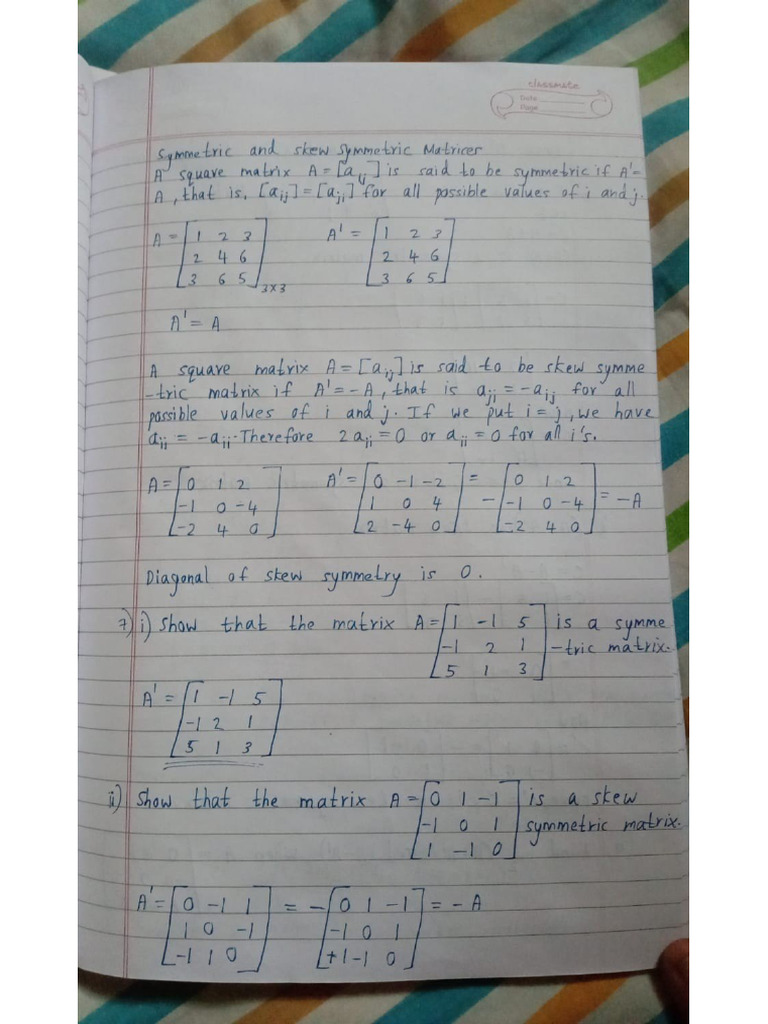 classmate
Date
Page
Symmetric and skew symmetric Matrices
A square matrix A = [aij] is said to be symmetric if A' =
A, that is, [aij] = [aji] for all possible values of i and j.
A = [1 2 3 A' = [1 2 3
2 4 6 2 4 6
3 6 5]3x3 3 6 5]
A' = A
A square matrix A = [aij] is said to be skew symme
-tric matrix if A' = -A, that is aji = -aij for all
possible values of i and j. If we put i = j, we have
aii = -aii. Therefore 2aii = 0 or aii = 0 for all i's.
A = [0 1 2 A' = [0 -1 -2 = - [0 1 2 = -A
-1 0 -4 1 0 4 -1 0 -4
-2 4 0] 2 -4 0] -2 4 0]
Diagonal of skew symmetry is 0.
7) i) Show that the matrix A = [1 -1 5 is a symme
-1 2 1 -tric matrix.
5 1 3]
A' = [1 -1 5
-1 2 1
5 1 3]
ii) Show that the matrix A = [0 1 -1 is a skew
-1 0 1 symmetric matrix.
1 -1 0]
A' = [0 -1 1 = - [0 1 -1 = -A
1 0 -1 -1 0 1
-1 1 0] +1 -1 0]